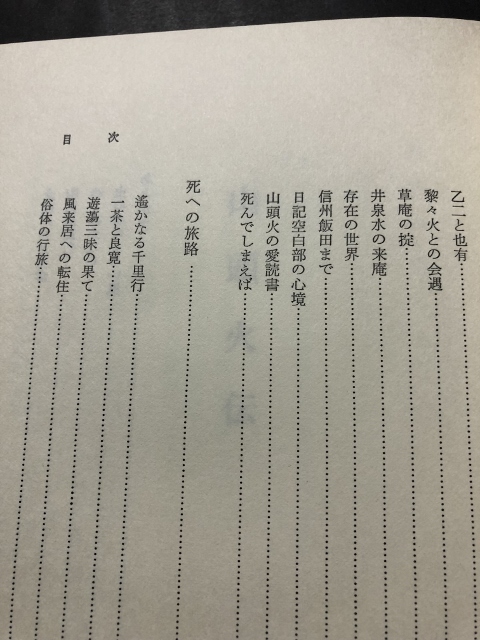 乙二と也有
黎々火との会遇
草庵の掟
井泉水の来庵
存在の世界
信州飯田まで
日記空白部の心境
山頭火の愛読書
死んでしまえば
死への旅路
遙かなる千里行
一茶と良寛
遊蕩三昧の果て
風来居への転住
俗体の行旅
目次